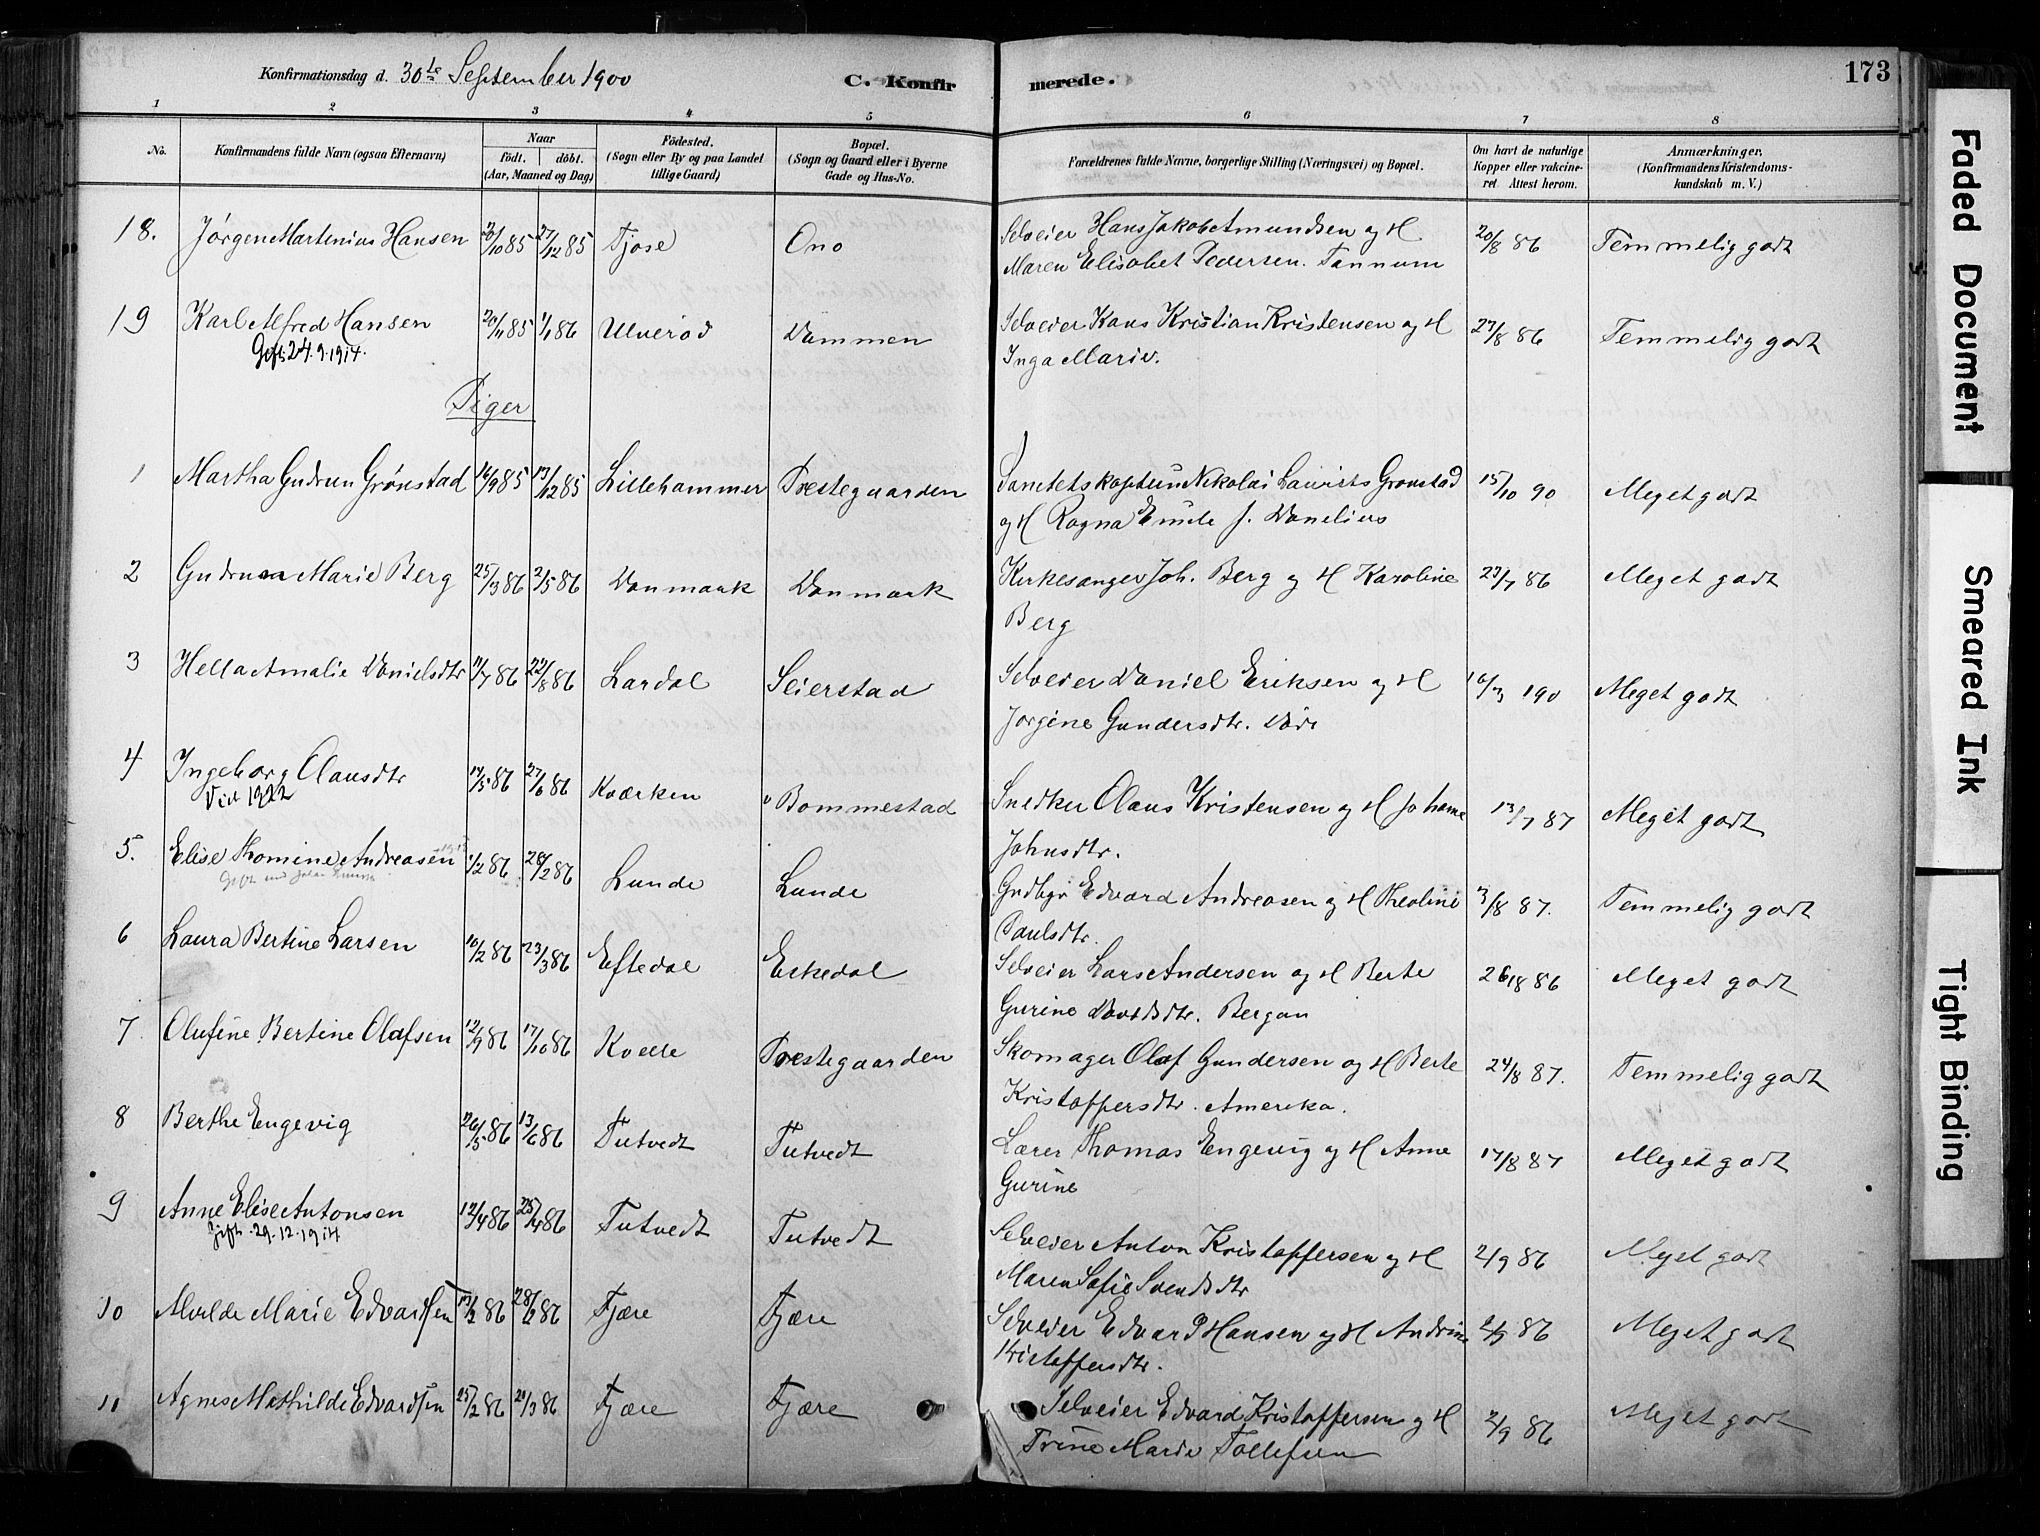 Konfirmationsdag d. 30te September 1900
C. Konfirmerede.
173
1 2 3 4 5 6 7 8
No. Konfirmandens fulde Navn (ogsaa Efternavn) Naar födt. döbt. (Aar, Maaned og Dag) Födested. (Sogn eller By og paa Landet tillige Gaard) Bopæl. (Sogn og Gaard eller i Byerne Gade og Hus-No. Forældrenes fulde Navne, borgerlige Stilling (Næringsvei) og Bopæl. Om havt de naturlige Kopper eller vakcineret. Attest herom. Anmærkninger, (Konfirmandens Kristendomskundskab m. V.)
18. Jørgen Martinius Hansen 20/10 85 27/12 85 Fjose Ono Selveier Hans Jakob Amundsen og H 20/8 86 Temmelig godt
Maren Elisabet Pedersen. Tannum
19 Karl Alfred Hansen 20/11 85 1/1 86 Ulverød Dammen Selveier Hans Kristian Kristensen og H 27/8 86 Temmelig godt
Gift 24.9.1914. Inga Marie.
Piger
1 Martha Gudrun Grønstad 16/9 85 13/12 85 Lillehammer Prestegaarden Sanitetskaptein Nikolai Lauritz Grønstad 15/10 90 Meget godt
og H Ragna Emile f. Danelius
2 Gudrun Marie Berg 25/3 86 2/5 86 Danmark Danmark Kirkesanger Joh. Berg og H Karoline 23/7 86 Meget godt
Berg
3 Hella Amalie Danielsdtr 11/7 86 22/8 86 Lardal Seierstad Selveier Daniel Eriksen og H Meget godt
Jørgine Gundersdtr.
4 Ingeborg Olausdtr 14/5 86 27/6 86 Kværken Bommestad Snedker Olaus Kristensen og H Johanne 13/7 87 Meget godt
Vid 1922 Johnsdtr.
5. Elise Thomine Andreasen 1/2 86 28/2 86 Lunde Lunde Grdbgr Edvard Andreasen og H Theoline 3/8 87. Temmelig godt
Paulsdtr.
6 Laura Bertine Larsen 10/2 86 23/3 86 Eftedal Eskedal Selveier Lars Andersen og H Berte 26/8 86 Meget godt
Gurine Davidsdtr. Bergan
7. Olufine Bertine Olafsen 12/9 86 17/10 86 Kvelle Prestegaarden Skomager Olaf Gundersen og H Berte 24/8 87. Temmelig godt
Kristoffersdtr. Amerika.
8 Berthe Engevig 26/5 86 13/6 86 Tutvedt Tutvedt Lærer Thomas Engevig og H Anne 17/8 87 Meget godt
Gurine
9 Anne Elise Antonsen 12/4 86 25/4 86 Tutvedt Tutvedt Selveier Anton Kristoffersen og H 2/9 86 Meget godt
Gift. 29.12.1914 Maren Sofie Svendsdtr
10 Alvilde Marie Edvardsen 13/2 86 28/2 86 Fjære Fjære Selveier Edvard Hansen og H Andrine 2/9 86 Meget godt
Kristoffersdtr.
11 Agnes Mathilde Edvardsen 25/2 86 21/3 86 Fjære Fjære Selveier Edvard Kristoffersen og H 2/9 86 Meget godt
Trine Marie Tollefsen
Faded Document
Smeared Ink
Tight Binding